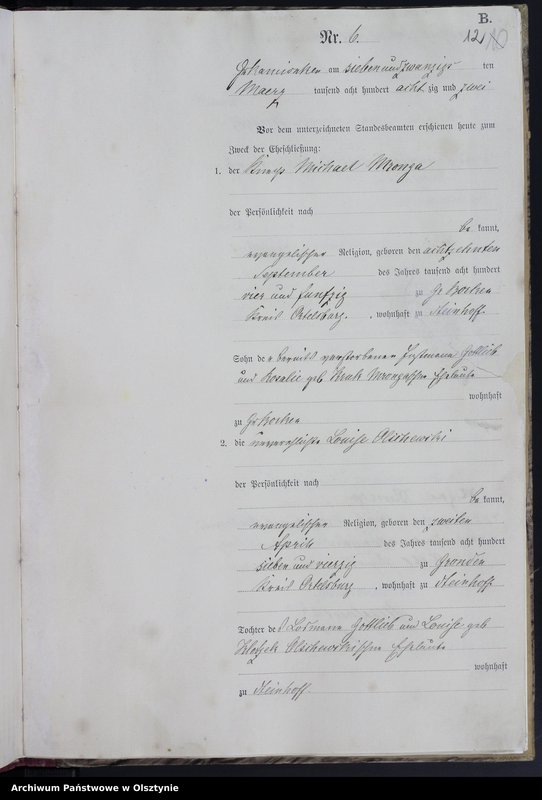 B.
Nr. 6.
12
am sieben und zwanzig ten
Maerz tausend acht hundert acht zig und zwei
Vor dem unterzeichneten Standesbeamten erschienen heute zum
Zweck der Eheschließung:
1. der Knecht Michael Wronga
der Persönlichkeit nach
be kannt,
evangelischer Religion, geboren den achtzehnten
September des Jahres tausend acht hundert
vier und funfzig zu Gr Borken
Kreis Ortelsburg, wohnhaft zu Steinhoff.
Sohn der bereits verstorbenen Gottlieb
und Rosalie geb Eheleute
wohnhaft
zu Gr Borken
2. die unverehelichte Louise Olschewski
der Persönlichkeit nach
be kannt,
evangelischer Religion, geboren den zweiten
April des Jahres tausend acht hundert
sieben und vierzig zu
Kreis Ortelsburg, wohnhaft zu Steinhoff
Tochter des Losmann Gottlieb und Louise geb
Olschewskischen Eheleute
wohnhaft
zu Steinhoff.
Archiwum Państwowe w Olsztynie